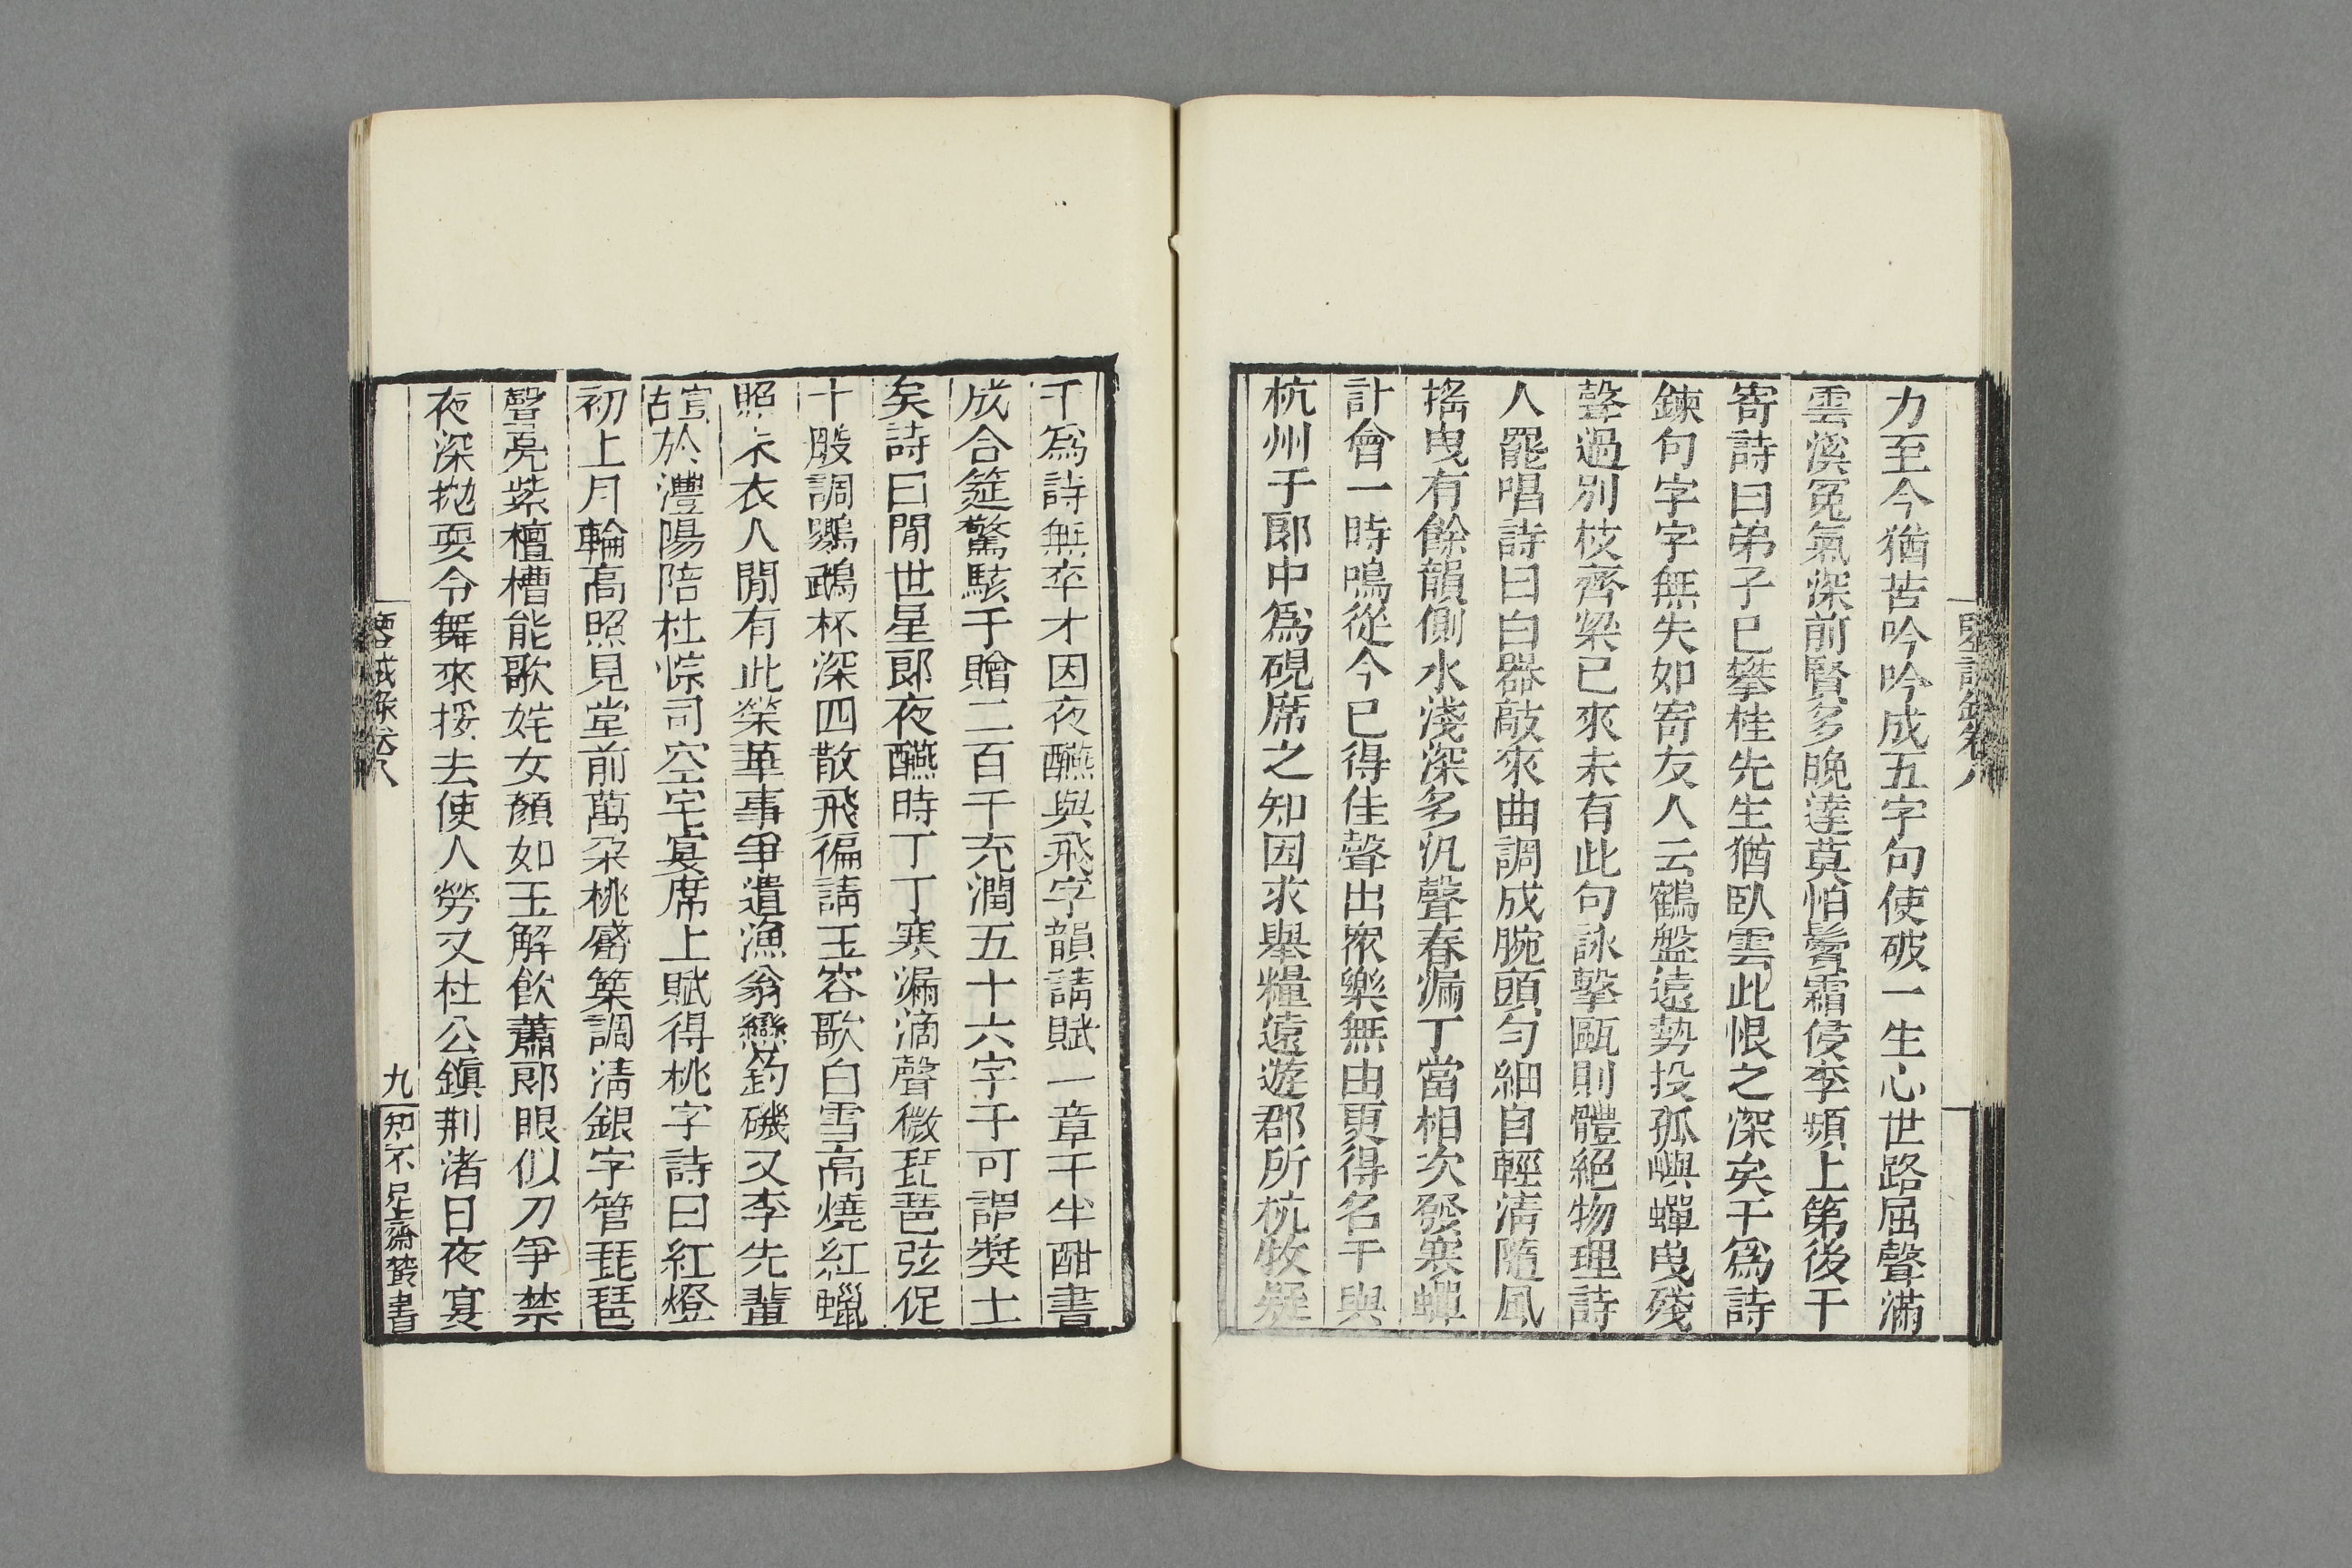 力至今猶苦吟吟成五字句使破一生心世路屈聲滿
雲溪冤氣深前賢多晚達莫怕鬢霜侵李頻上第後干
寄詩曰弟子已攀桂先生猶臥雲此恨之深矣干爲詩
鍊句字字無失如寄友人云鶴盤遠勢投孤嶼蟬曳殘
聲過別枝齊梁已來未有此句詠擊甌則體絕物理詩
人罷唱詩曰白器敲來曲調成腕頭勻細自輕清隨風
搖曳有餘韻側水淺深多汎聲春漏丁當相次發寒蟬
計會一時鳴從今已得佳聲出衆樂無由更得名干與
杭州于郎中爲硯席之知因求舉糧遠遊郡所杭牧疑
干爲詩無卒才因夜醼與飛字韻請賦一章干半酣書
成合筵驚駭于贈二百千充潤五十六字于可謂獎士
矣詩曰閒世星郎夜醼時丁丁寒漏滴聲微琵琶弦促
十般調鸚鵡杯深四散飛徧請玉容歌白雪高燒紅蠟
照朱衣人閒有此榮華事爭遣漁翁戀釣磯又李先輩
宣古於澧陽陪杜悰司空宅宴席上賦得桃字詩曰紅燈
初上月輪高照見堂前萬朵桃觱篥調清銀字管琵琶
聲亮紫檀槽能歌姹女顏如玉解飲蕭郎眼似刀爭禁
夜深拋耍令舞來挼去使人勞又杜公鎮荆渚日夜宴
鑒誡錄卷八
九
知不足齋叢書